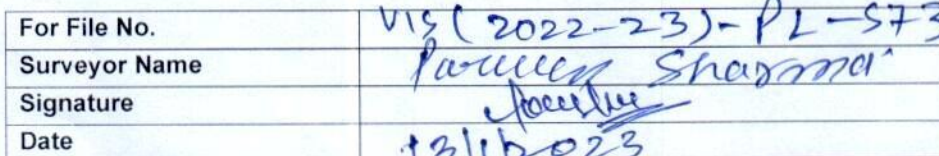 For File No. VIS(2022-23)-PL-573
Surveyor Name Parveen Sharma
Signature
Date 13/1/2023